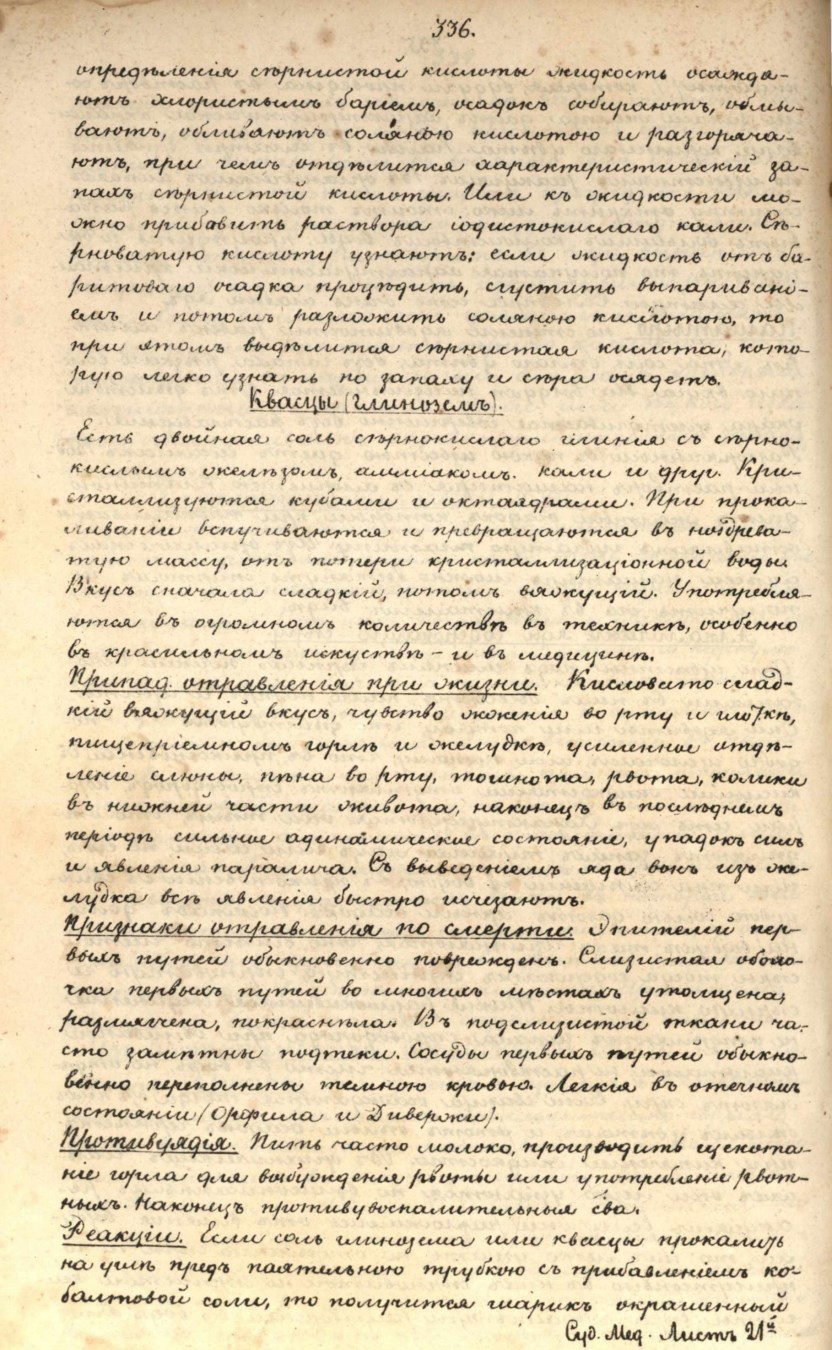 336.
опредѣленія сѣрнистой кислоты жидкость осажда-
ютъ хлористымъ баріемъ, осадокъ собираютъ, обмы-
ваютъ, обливаютъ соляною кислотою и разгоряча-
ютъ, при чемъ отдѣлится характеристическій за-
пахъ сѣрнистой кислоты. Или къ жидкости мо-
жно прибавить раствора іодистокислаго кали. Сѣ-
рноватую кислоту узнаютъ: если жидкость отъ ба-
ритоваго осадка процѣдить, сгустить выпаривані-
емъ и потомъ разложить соляною кислотою, то
при этомъ выдѣлится сѣрнистая кислота, кото-
рую легко узнать по запаху и сѣра осядетъ.
Квасцы (глиноземъ).
Есть двойная соль сѣрнокислаго глинія съ сѣрно-
кислымъ желѣзомъ, амміакомъ. кали и друг. Кри-
сталлизуются кубами и октаэдрами. При прока-
ливаніи вспучиваются и превращаются въ ноздрева-
тую массу, отъ потери кристаллизаціонной воды.
Вкусъ сначала сладкій, потомъ вяжущій. Употребля-
ются въ огромномъ количествѣ въ техникѣ, особенно
въ красильномъ искуствѣ – и въ медицинѣ.
Припад. отравленія при жизни. Кисловато слад-
кій вяжущій вкусъ, чувство жженія во рту и глоткѣ,
пищепріемномъ горлѣ и желудкѣ, усиленное отдѣ-
леніе слюны, пѣна во рту, тошнота, рвота, колики
въ нижней части живота, наконецъ въ послѣднемъ
періодѣ сильное адинамическое состояніе, упадокъ силъ
и явленія паралича. Съ выведеніемъ яда вонъ изъ же-
лудка всѣ явленія быстро исчезаютъ.
Признаки отравленія по смерти. Эпителій пер-
выхъ путей обыкновенно поврежденъ. Слизистая оболо-
чка первыхъ путей во многихъ мѣстахъ утолщена,
размягчена, покраснѣла. Въ подслизистой ткани ча-
сто замѣтны подтеки. Сосуды первыхъ путей обыкно-
венно переполнены темною кровью. Легкія въ отечномъ
состояніи (Орфила и Дивержи).
Противуядія. Пить часто молоко, производить щекота-
ніе горла для возбужденія рвоты или употребленіе рвот-
ныхъ. Наконецъ противувоспалительныя сва.
Реакціи. Если соль глинозема или квасцы прокалить
на углѣ предъ паятельною трубкою съ прибавленіемъ ко-
балтовой соли, то получится шарикъ окрашенный
Суд. Мед. Листъ 21й